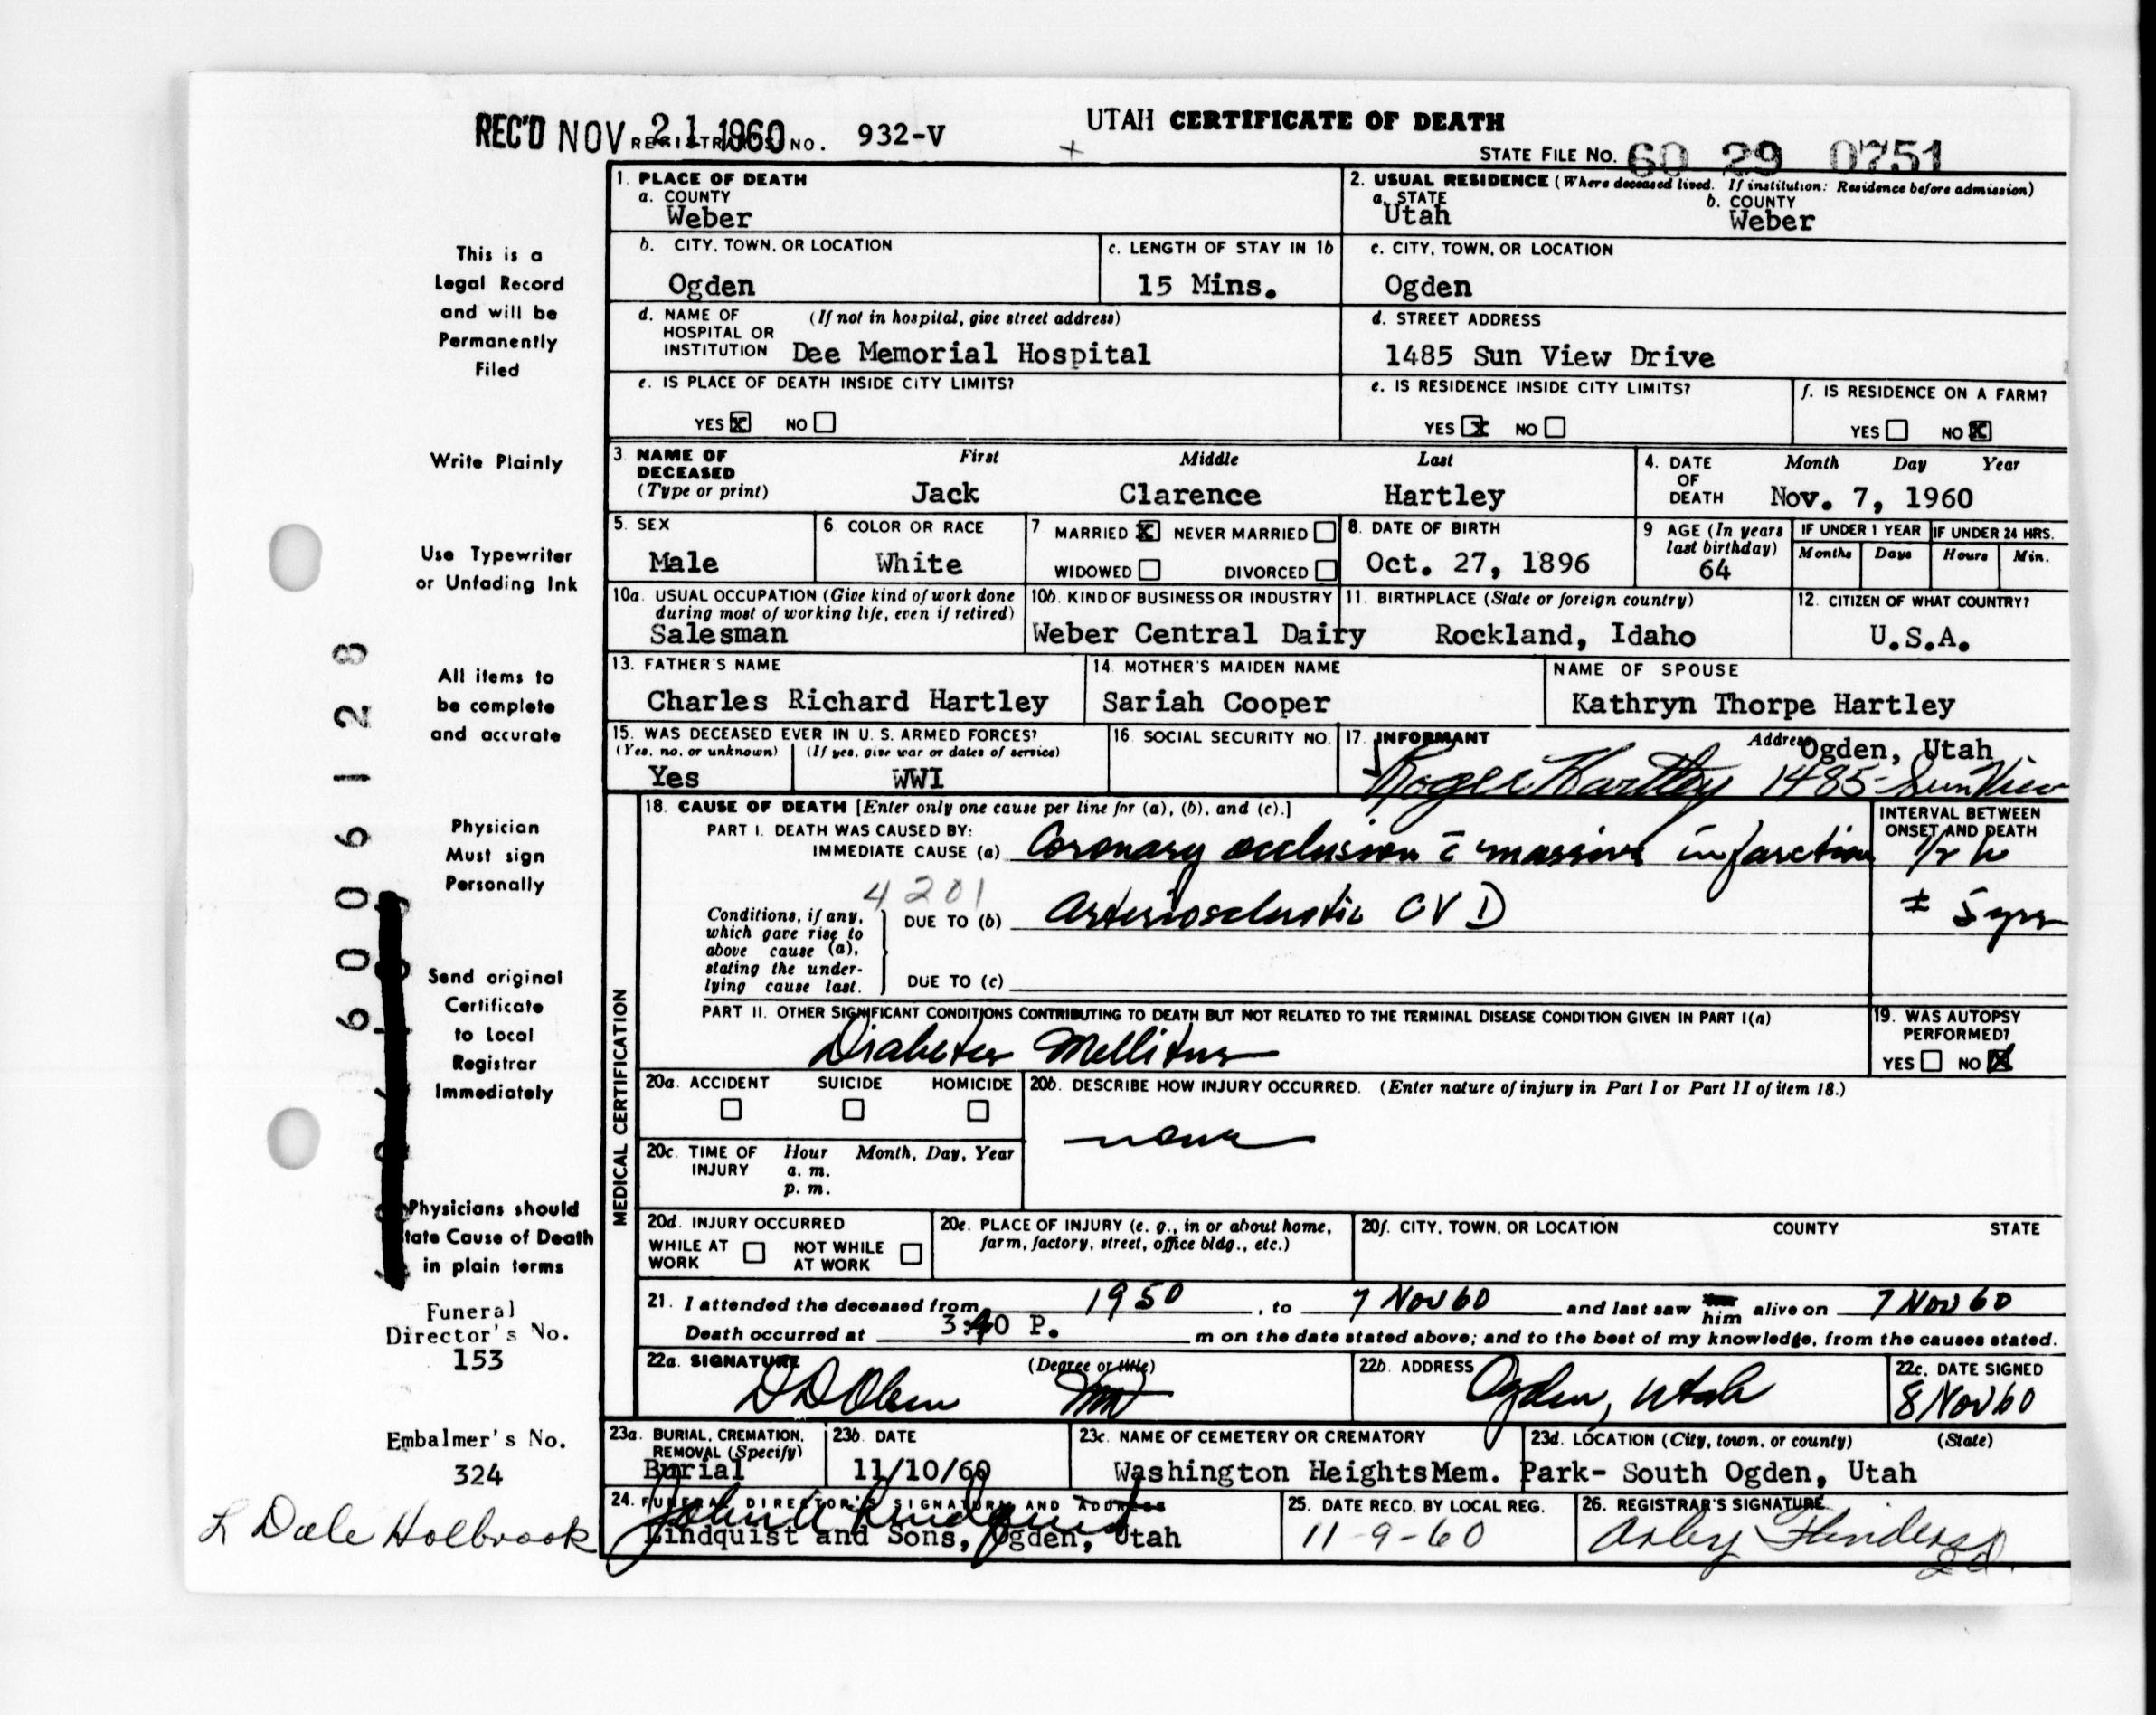 REC'D NOV 21 1960 REGISTRAR'S NO. 932-V
UTAH CERTIFICATE OF DEATH
STATE FILE NO. 60 29 0751
1. PLACE OF DEATH
a. COUNTY
Weber
2. USUAL RESIDENCE (Where deceased lived. If institution: Residence before admission)
a. STATE b. COUNTY
Utah Weber
b. CITY, TOWN, OR LOCATION
Ogden
c. LENGTH OF STAY IN 1b
15 Mins.
c. CITY, TOWN, OR LOCATION
Ogden
d. NAME OF (If not in hospital, give street address)
HOSPITAL OR
INSTITUTION Dee Memorial Hospital
d. STREET ADDRESS
1485 Sun View Drive
e. IS PLACE OF DEATH INSIDE CITY LIMITS?
YES X NO
e. IS RESIDENCE INSIDE CITY LIMITS?
YES X NO
f. IS RESIDENCE ON A FARM?
YES NO X
3. NAME OF First Middle Last
DECEASED
(Type or print) Jack Clarence Hartley
4. DATE Month Day Year
OF
DEATH Nov. 7, 1960
5. SEX
Male
6. COLOR OR RACE
White
7 MARRIED X NEVER MARRIED
WIDOWED DIVORCED
8. DATE OF BIRTH
Oct. 27, 1896
9 AGE (In years
last birthday)
64
IF UNDER 1 YEAR IF UNDER 24 HRS.
Months Days Hours Min.
10a. USUAL OCCUPATION (Give kind of work done
during most of working life, even if retired)
Salesman
10b. KIND OF BUSINESS OR INDUSTRY
Weber Central Dairy
11. BIRTHPLACE (State or foreign country)
Rockland, Idaho
12. CITIZEN OF WHAT COUNTRY?
U.S.A.
13. FATHER'S NAME
Charles Richard Hartley
14. MOTHER'S MAIDEN NAME
Sariah Cooper
NAME OF SPOUSE
Kathryn Thorpe Hartley
15. WAS DECEASED EVER IN U. S. ARMED FORCES?
(Yes, no, or unknown) (If yes, give war or dates of service)
Yes WWI
16. SOCIAL SECURITY NO.
17. INFORMANT Address Ogden, Utah
Roger Hartley 1485 - Sun View
MEDICAL CERTIFICATION
18. CAUSE OF DEATH [Enter only one cause per line for (a), (b), and (c).]
PART I. DEATH WAS CAUSED BY:
IMMEDIATE CAUSE (a) Coronary occlusion c̄ massive infarction
INTERVAL BETWEEN
ONSET AND DEATH
1/2 h
4201
Conditions, if any,
which gave rise to
above cause (a),
stating the under-
lying cause last.
DUE TO (b) Arteriosclerotic CVD ± 5 yrs
DUE TO (c)
PART II. OTHER SIGNIFICANT CONDITIONS CONTRIBUTING TO DEATH BUT NOT RELATED TO THE TERMINAL DISEASE CONDITION GIVEN IN PART I(a)
Diabetes Mellitus
19. WAS AUTOPSY
PERFORMED?
YES NO X
20a. ACCIDENT SUICIDE HOMICIDE
20b. DESCRIBE HOW INJURY OCCURRED. (Enter nature of injury in Part I or Part II of item 18.)
none
20c. TIME OF Hour Month, Day, Year
INJURY a. m.
p. m.
20d. INJURY OCCURRED
WHILE AT NOT WHILE
WORK AT WORK
20e. PLACE OF INJURY (e. g., in or about home,
farm, factory, street, office bldg., etc.)
20f. CITY, TOWN, OR LOCATION COUNTY STATE
21. I attended the deceased from 1950, to 7 Nov 60 and last saw him alive on 7 Nov 60
Death occurred at 3:40 P. m on the date stated above; and to the best of my knowledge, from the causes stated.
22a. SIGNATURE (Degree or title)
D D Olsen MD
22b. ADDRESS
Ogden, Utah
22c. DATE SIGNED
8 Nov 60
23a. BURIAL, CREMATION,
REMOVAL (Specify)
Burial
23b. DATE
11/10/60
23c. NAME OF CEMETERY OR CREMATORY
Washington Heights Mem. Park-
23d. LOCATION (City, town, or county) (State)
South Ogden, Utah
24. FUNERAL DIRECTOR'S SIGNATURE AND ADDRESS
Lindquist and Sons, Ogden, Utah
25. DATE RECD. BY LOCAL REG.
11-9-60
26. REGISTRAR'S SIGNATURE
This is a
Legal Record
and will be
Permanently
Filed
Write Plainly
Use Typewriter
or Unfading Ink
All items to
be complete
and accurate
Physician
Must sign
Personally
Send original
Certificate
to Local
Registrar
Immediately
Physicians should
tate Cause of Death
in plain terms
Funeral
Director's No.
153
Embalmer's No.
324
L Dale Holbrook
60061 28